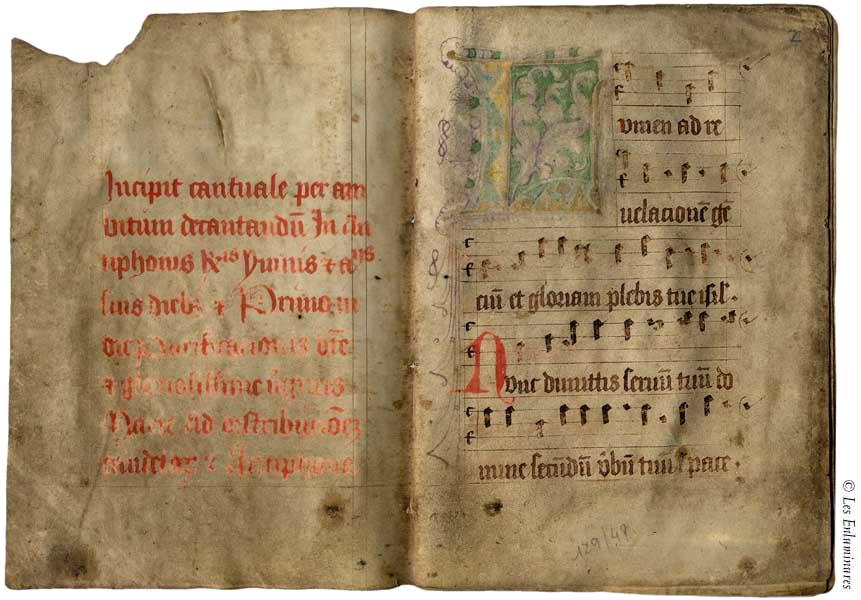 Incipit cantuale per am
bitum decantandū In an
tiphonis Rijs ymnis ⁊ aijs
suis dieb⁊ ⁊ Primo in
die purificationis bt̄e
⁊ gloriosissime virginis
Marie ad distribucōēz
candelaꝝ ⁊ Antiphona
2
Lumen ad re
uelacionem ge
ciū et gloriam plebis tue isrl.
Nunc dimittis seruū tuū do
mine secundū v̄bū tuū ī pace.
129/49
© Les Enluminures